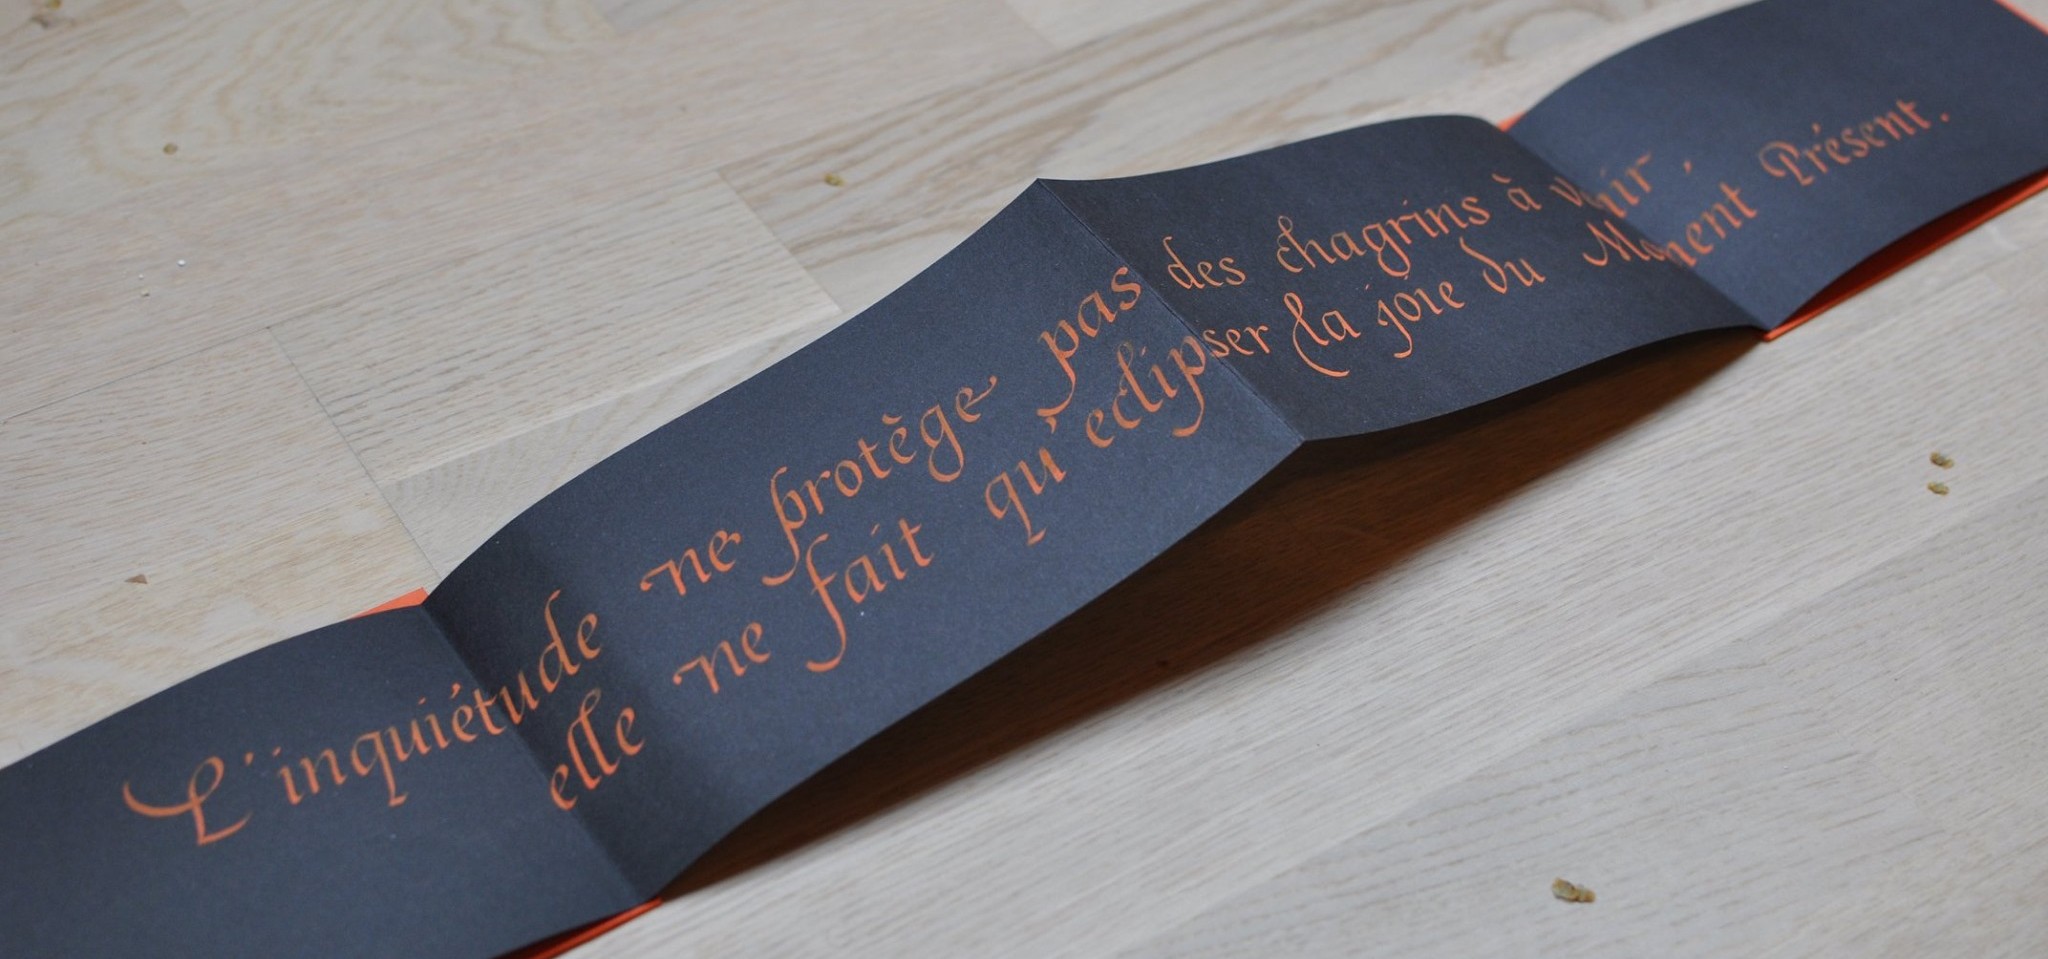 L'inquiétude ne protège pas des chagrins à venir,
elle ne fait qu'eclipser la joie du Moment Présent.